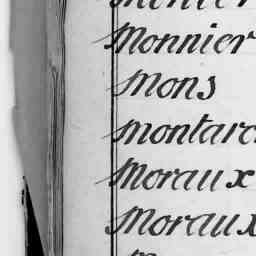 Monnier
Mons
Montarc
Moraux
Moraux